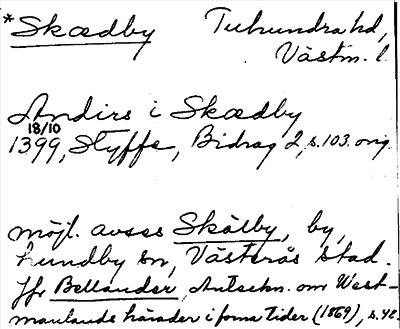 *Skædby Tuhundra hd,
Västm. l.
Andirs i Skædby
18/10
1399, Styffe, Bidrag 2, s. 103. orig.
möjl. avses Skälby, by,
Lundby sn, Västerås stad.
Jfr Bellander, Anteckn. om West-
manlands härader i forna tider (1869), s. 42.